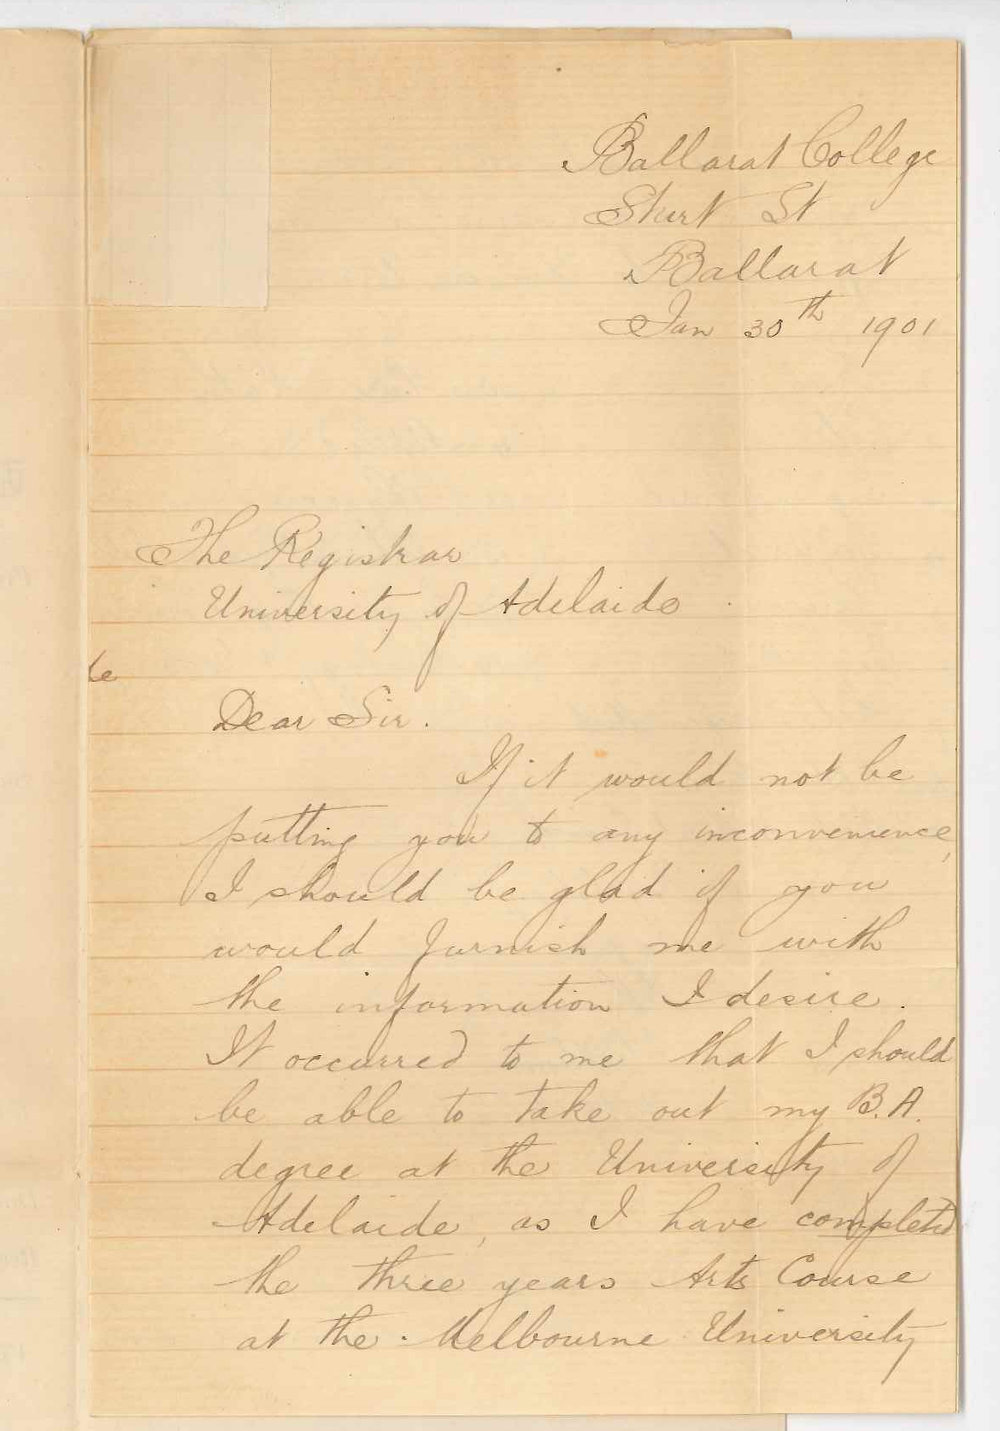 Ballarat College
Sturt St
Ballarat
Jan 30th 1901
The Registrar
University of Adelaide.
Dear Sir.
If it would not be
putting you to any inconvenience,
I should be glad if you
would furnish me with
the information I desire.
It occurred to me that I should
be able to take out my B.A.
degree at the University of
Adelaide, as I have completed
the three years Arts Course
at the Melbourne University